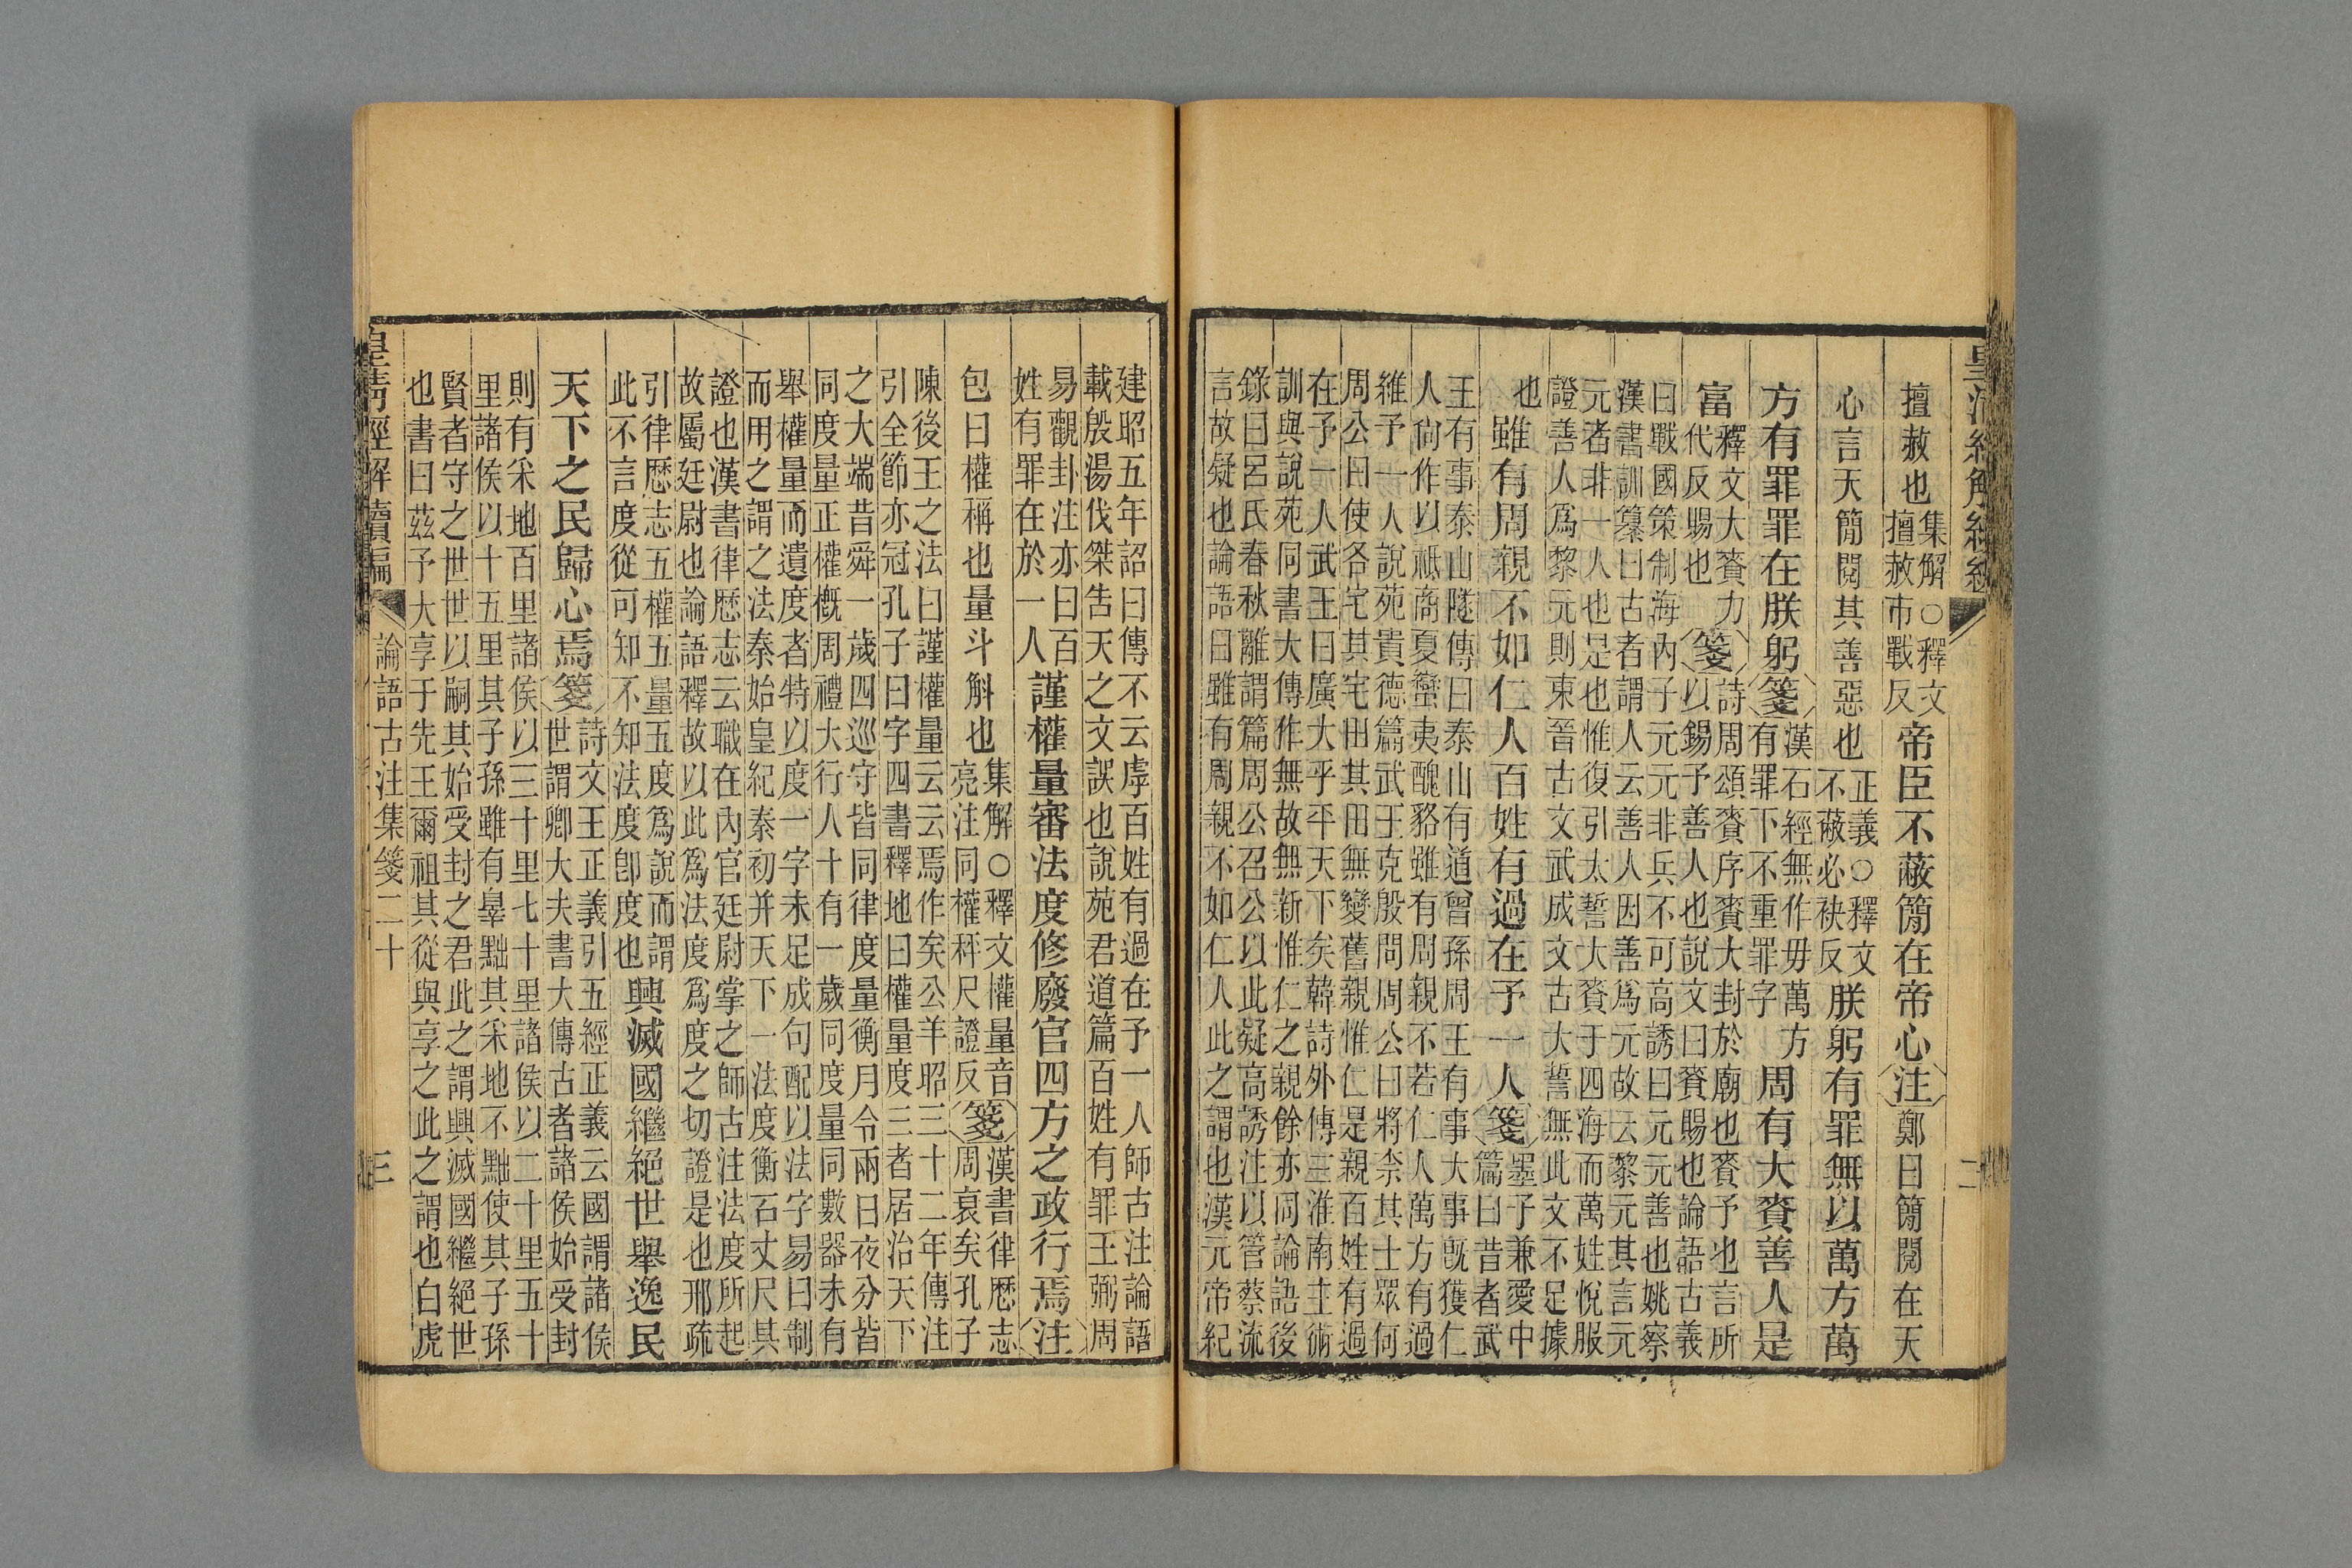 皇清經解續 二
擅赦也集解○釋文
擅赦市戰反
帝臣不蔽簡在帝心注鄭曰簡閱在天
心言天簡閱其善惡也正義○釋文
不蔽必袂反
朕躬有罪無以萬方萬
方有罪罪在朕躬箋漢石經無作毋萬方
有罪下不重罪字
周有大賚善人是
富釋文大賚力
代反賜也
箋詩周頌賚序賚大封於廟也賚予也言所
以錫予善人也說文曰賚賜也論語古義
曰戰國策制海內子元元非兵不可高誘曰元元善也姚察
漢書訓纂曰古者謂人云善人因善爲元故云黎元其言元
元者非一人也是也惟復引太誓大賚于四海而萬姓悅服
證善人爲黎元則東晉古文武成文古大誓無此文不足據
也
雖有周親不如仁人百姓有過在予一人箋墨子兼愛中
篇曰昔者武
王有事泰山隧傳曰泰山有道曾孫周王有事大事旣獲仁
人尙作以祗商夏蠻夷醜貉雖有周親不若仁人萬方有過
維予一人說苑貴德篇武王克殷問周公曰將柰其士眾何
周公曰使各宅其宅田其田無變舊親惟仁是親百姓有過
在予一人武王曰廣大乎平天下矣韓詩外傳三淮南主術
訓與說苑同書大傳作無故無新惟仁之親餘亦同論語後
錄曰呂氏春秋離謂篇周公召公以此疑高誘注以管蔡流
言故疑也論語曰雖有周親不如仁人此之謂也漢元帝紀
建昭五年詔曰傳不云虖百姓有過在予一人師古注論語
載殷湯伐桀告天之文誤也說苑君道篇百姓有罪王弼周
易觀卦注亦曰百
姓有罪在於一人
謹權量審法度修廢官四方之政行焉注
包曰權稱也量斗斛也集解○釋文權量音
亮注同權秤尺證反
箋漢書律厯志
周衰矣孔子
陳後王之法曰謹權量云云焉作矣公羊昭三十二年傳注
引全節亦冠孔子曰字四書釋地曰權量度三者居治天下
之大端昔舜一歲四巡守皆同律度量衡月令兩曰夜分皆
同度量正權概周禮大行人十有一歲同度量同數器未有
舉權量而遺度者特以度一字未足成句配以法字易曰制
而用之謂之法秦始皇紀秦初并天下一法度衡石丈尺其
證也漢書律厯志云職在內官廷尉掌之師古注法度所起
故屬廷尉也論語釋故以此爲法度爲度之切證是也邢疏
引律厯志五權五量五度爲說而謂
此不言度從可知不知法度卽度也
興滅國繼絕世舉逸民
天下之民歸心焉箋詩文王正義引五經正義云國謂諸侯
世謂卿大夫書大傳古者諸侯始受封
則有采地百里諸侯以三十里七十里諸侯以二十里五十
里諸侯以十五里其子孫雖有辠黜其采地不黜使其子孫
賢者守之世世以嗣其始受封之君此之謂興滅國繼絕世
也書曰茲予大享于先王爾祖其從與享之此之謂也白虎
皇清經解續編 論語古注集箋二十 三